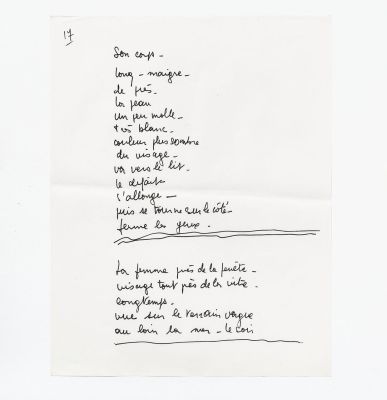 17
Son corps -
long - maigre -
de près.
la peau
un peu molle -
très blanc -
couleur plus sombre
du visage -
va vers le lit.
le défait
s'allonge -
puis se tourne sur le côté -
ferme les yeux.
La femme près de la fenêtre -
visage tout près de la vitre.
longtemps.
vue sur le terrain vague
au loin la mer - le